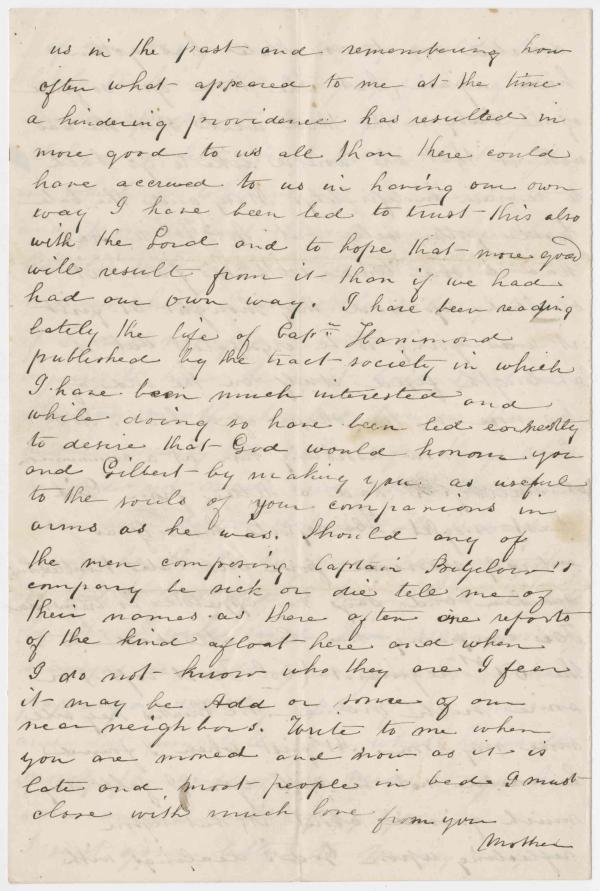 us in the past and remembering how
often what appeared to me at the time
a hindering providence has resulted in
more good to us all than there could
have accrued to us in having our own
way I have been led to trust this also
with the Lord and to hope that more good
will result from it than if we had
had our own way. I have been reading
lately the life of Capn Hammond
published by the tract society in which
I have been much interested and
while doing so have been led earnestly
to desire that God would honour you
and Gilbert by making you as useful
to the souls of your companions in
arms as he was. Should any of
the men composing Captain Bigelow's
company be sick or die tell me of
their names as there often are reports
of the kind afloat here and when
I do not know who they are I fear
it may be Add or some of our
near neighbors. Write to me when
you are moved and now as it is
late and most people in bed I must
close with much love from your
Mother